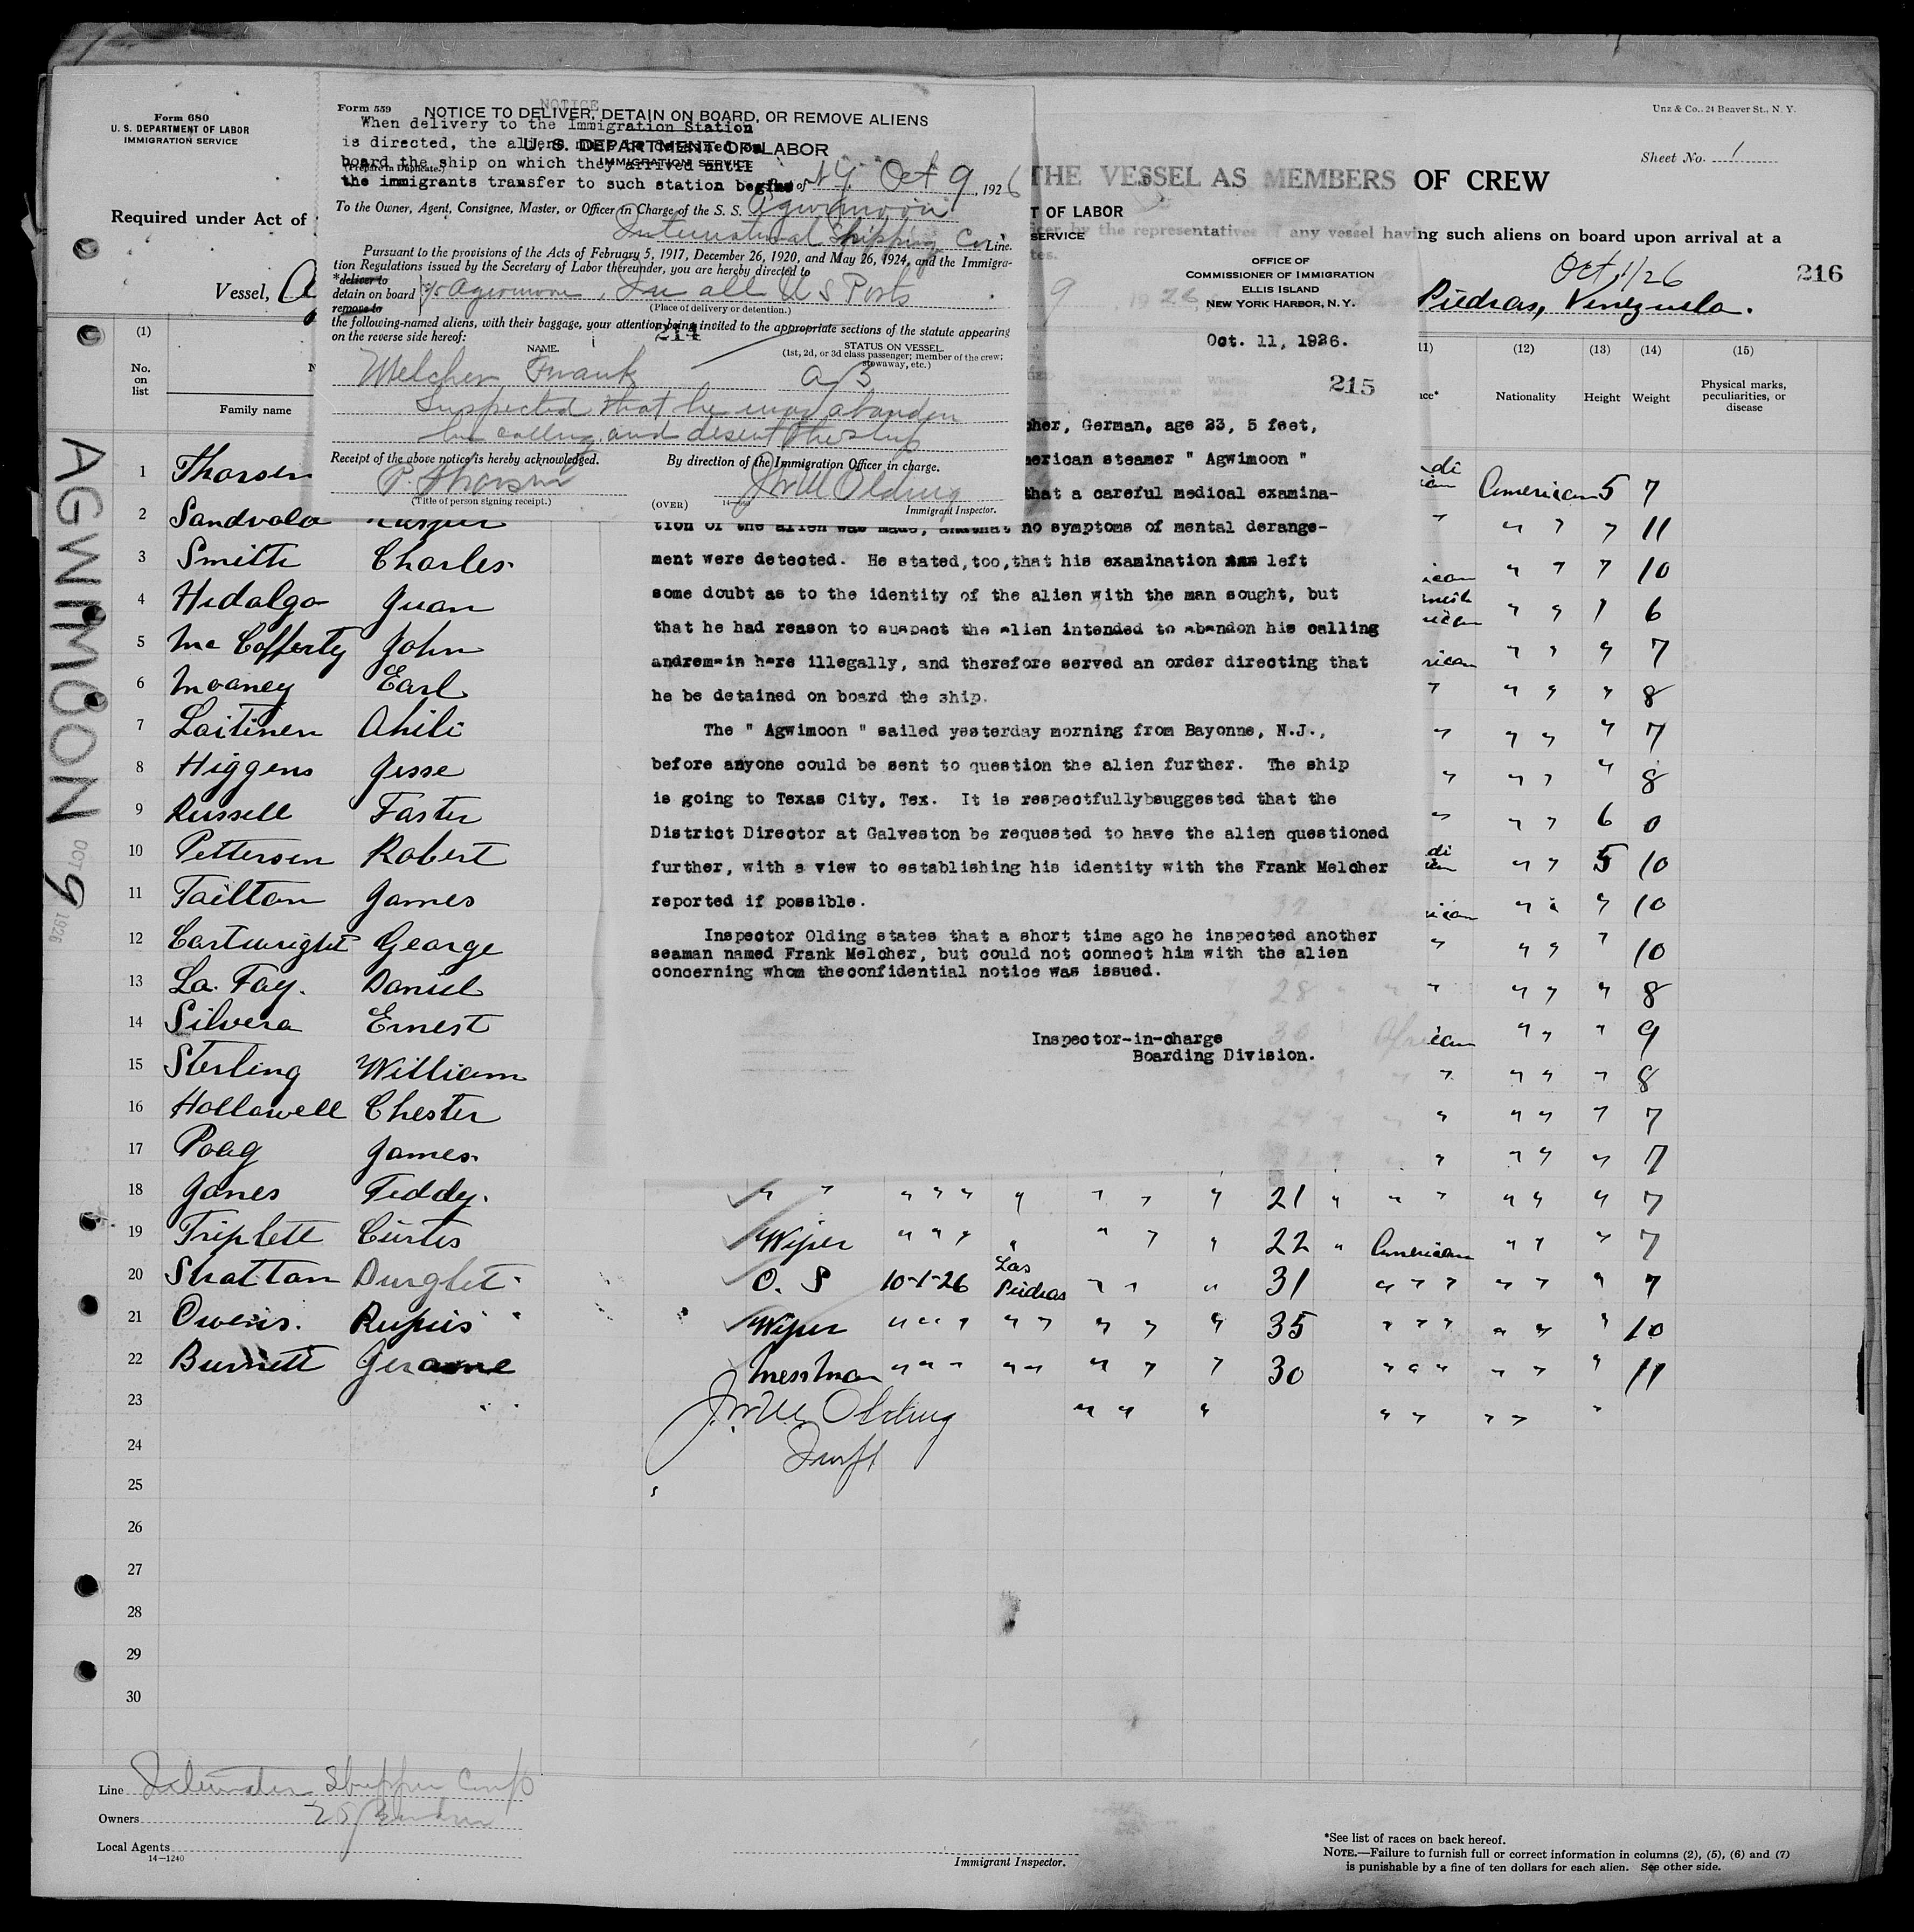 Form 680
U. S. DEPARTMENT OF LABOR
IMMIGRATION SERVICE
Required under Act of
Vessel, A
Form 559
NOTICE
NOTICE TO DELIVER, DETAIN ON BOARD, OR REMOVE ALIENS
When delivery to the Immigration Station
is directed, the aliens
U. S. DEPARTMENT OF LABOR
board the ship on which they arrived until
IMMIGRATION SERVICE
(Prepare in Duplicate.)
the immigrants transfer to such station begins
of N.Y. Oct 9, 1926
To the Owner, Agent, Consignee, Master, or Officer in Charge of the S. S. Agwimoon
International Shipping Co Line.
Pursuant to the provisions of the Acts of February 5, 1917, December 26, 1920, and May 26, 1924, and the Immigra-
tion Regulations issued by the Secretary of Labor thereunder, you are hereby directed to
*deliver to
detain on board S/S Agwimoon, In all U S Ports
remove to
(Place of delivery or detention.)
the following-named aliens, with their baggage, your attention being invited to the appropriate sections of the statute appearing
on the reverse side hereof:
214
NAME.
STATUS ON VESSEL
(1st, 2d, or 3d class passenger; member of the crew;
stowaway, etc.)
Melcher Frank A/B
Suspected that he may abandon
his calling and desert the ship
Receipt of the above notice is hereby acknowledged.
By direction of the Immigration Officer in charge.
P. Thorsen
(Title of person signing receipt.)
(OVER)
Olding
Immigrant Inspector.
Unz & Co., 24 Beaver St., N. Y.
Sheet No. 1
THE VESSEL AS MEMBERS OF CREW
T OF LABOR
SERVICE
by the representatives of any vessel having such aliens on board upon arrival at a
Oct 1/26
216
Piedras, Venezuela.
OFFICE OF
COMMISSIONER OF IMMIGRATION
ELLIS ISLAND
NEW YORK HARBOR, N. Y.
Oct. 11, 1926.
215
cher, German, age 23, 5 feet,
merican steamer " Agwimoon "
that a careful medical examina-
tion of the alien was made, and that no symptoms of mental derange-
ment were detected. He stated, too, that his examination left
some doubt as to the identity of the alien with the man sought, but
that he had reason to suspect the alien intended to abandon his calling
andremain here illegally, and therefore served an order directing that
he be detained on board the ship.
The " Agwimoon " sailed yesterday morning from Bayonne, N.J.,
before anyone could be sent to question the alien further. The ship
is going to Texas City, Tex. It is respectfullybsuggested that the
District Director at Galveston be requested to have the alien questioned
further, with a view to establishing his identity with the Frank Melcher
reported if possible.
Inspector Olding states that a short time ago he inspected another
seaman named Frank Melcher, but could not connect him with the alien
concerning whom theconfidential notice was issued.
Inspector-in-charge
Boarding Division.
AGWIMOON OCT 9 1926
(1)
No.
on
list
Family name
(11) (12) (13) (14) (15)
Nationality Height Weight Physical marks,
peculiarities, or
disease
1 Thorsen American 5 7
2 Sandvold " " " 11
3 Smith Charles " " " 10
4 Hidalgo Juan " " " 6
5 Mc Cofferty John " " " 7
6 Mooney Earl " " " " 8
7 Laitinen Ahili " " " " 7
8 Higgens Jesse " " " " 8
9 Russell Faster " " " 6 0
10 Pettersen Robert " " 5 10
11 Tailton James " " " 10
12 Cartwright George " " " " 10
13 La. Fay. Daniel " " " " 8
14 Silvera Ernest " " " 9
15 Sterling William " " " " 8
16 Hollowell Chester " " " " 7
17 Poag James " " " " 7
18 Janes Teddy. " " " " " " " " " 21 " " " " " " 7
19 Triplett Curtis Wiper " " " " " " " 22 " American " " " 7
20 Stratton O. S 10-1-26 Las Piedras " " " 31 " " " " " " 7
21 Owens. Rufus Wiper " " " " " " " " " 35 " " " " " " 10
22 Burnett Jerome Messman " " " " " " " " 30 " " " " " " 11
23 " " " " " " " "
Olding
24
25
26
27
28
29
30
Line
Owners
Local Agents
14—1240
Immigrant Inspector.
*See list of races on back hereof.
NOTE.—Failure to furnish full or correct information in columns (2), (5), (6) and (7)
is punishable by a fine of ten dollars for each alien. See other side.